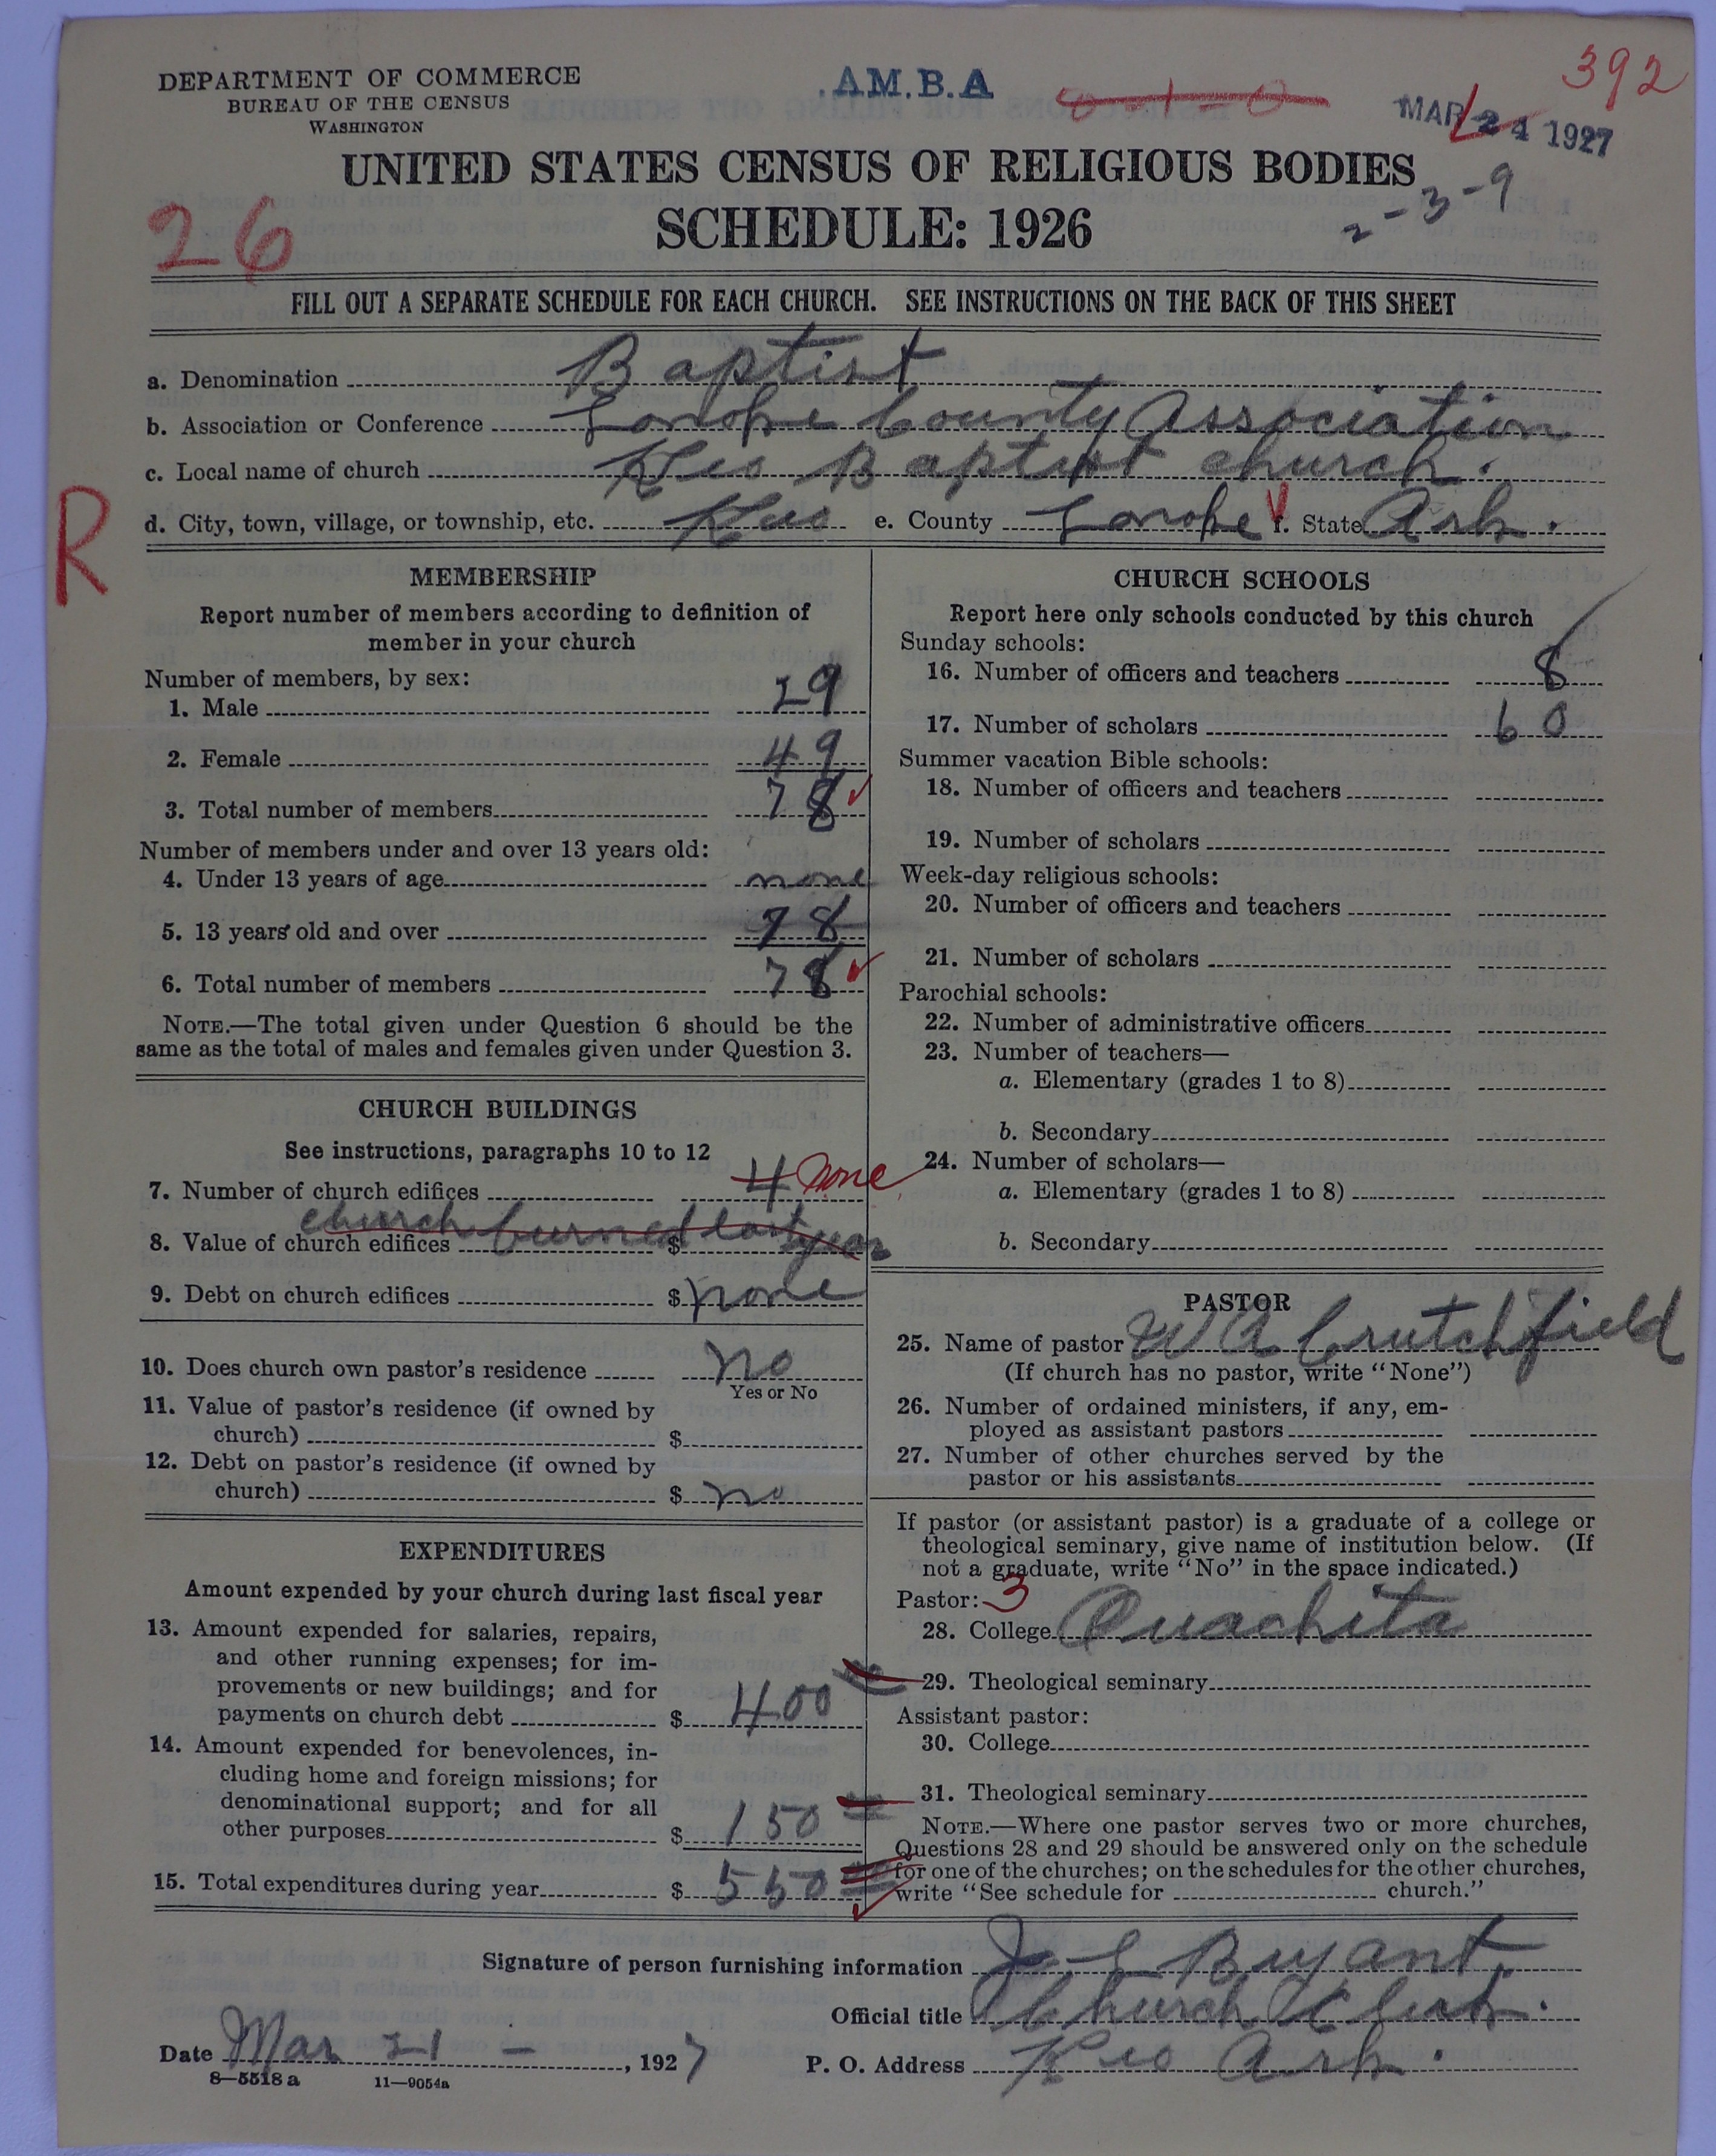 DEPARTMENT OF COMMERCE
BUREAU OF THE CENSUS
WASHINGTON
.AM.B.A
0-1-0
392
MAR 24 1927
2-3-9
UNITED STATES CENSUS OF RELIGIOUS BODIES
SCHEDULE: 1926
26
FILL OUT A SEPARATE SCHEDULE FOR EACH CHURCH. SEE INSTRUCTIONS ON THE BACK OF THIS SHEET
a. Denomination Baptist
b. Association or Conference Lonoke County Association
c. Local name of church Keo Baptist church.
d. City, town, village, or township, etc. Keo e. County Lonoke f. State Ark.
R
MEMBERSHIP
Report number of members according to definition of
member in your church
Number of members, by sex:
1. Male 29
2. Female 49
3. Total number of members 78
Number of members under and over 13 years old:
4. Under 13 years of age none
5. 13 years old and over 78
6. Total number of members 78
NOTE.—The total given under Question 6 should be the
same as the total of males and females given under Question 3.
CHURCH BUILDINGS
See instructions, paragraphs 10 to 12
7. Number of church edifices 4 none
church burned last year
8. Value of church edifices $
9. Debt on church edifices $ none
10. Does church own pastor's residence no
Yes or No
11. Value of pastor's residence (if owned by
church) $
12. Debt on pastor's residence (if owned by
church) $ no
EXPENDITURES
Amount expended by your church during last fiscal year
13. Amount expended for salaries, repairs,
and other running expenses; for im-
provements or new buildings; and for
payments on church debt $ 400 00
14. Amount expended for benevolences, in-
cluding home and foreign missions; for
denominational support; and for all
other purposes $ 150
15. Total expenditures during year $ 550
CHURCH SCHOOLS
Report here only schools conducted by this church
Sunday schools:
16. Number of officers and teachers 8
17. Number of scholars 60
Summer vacation Bible schools:
18. Number of officers and teachers
19. Number of scholars
Week-day religious schools:
20. Number of officers and teachers
21. Number of scholars
Parochial schools:
22. Number of administrative officers
23. Number of teachers—
a. Elementary (grades 1 to 8)
b. Secondary
24. Number of scholars—
a. Elementary (grades 1 to 8)
b. Secondary
PASTOR
25. Name of pastor W A Crutchfield
(If church has no pastor, write "None")
26. Number of ordained ministers, if any, em-
ployed as assistant pastors
27. Number of other churches served by the
pastor or his assistants
If pastor (or assistant pastor) is a graduate of a college or
theological seminary, give name of institution below. (If
not a graduate, write "No" in the space indicated.)
Pastor: 3
28. College Ouachita
29. Theological seminary
Assistant pastor:
30. College
31. Theological seminary
NOTE.—Where one pastor serves two or more churches,
Questions 28 and 29 should be answered only on the schedule
for one of the churches; on the schedules for the other churches,
write "See schedule for church."
Signature of person furnishing information J. E Bryant
Official title Church Clerk.
Date Mar 21 - , 1927 P. O. Address Keo Ark.
8—5518 a 11—9054a